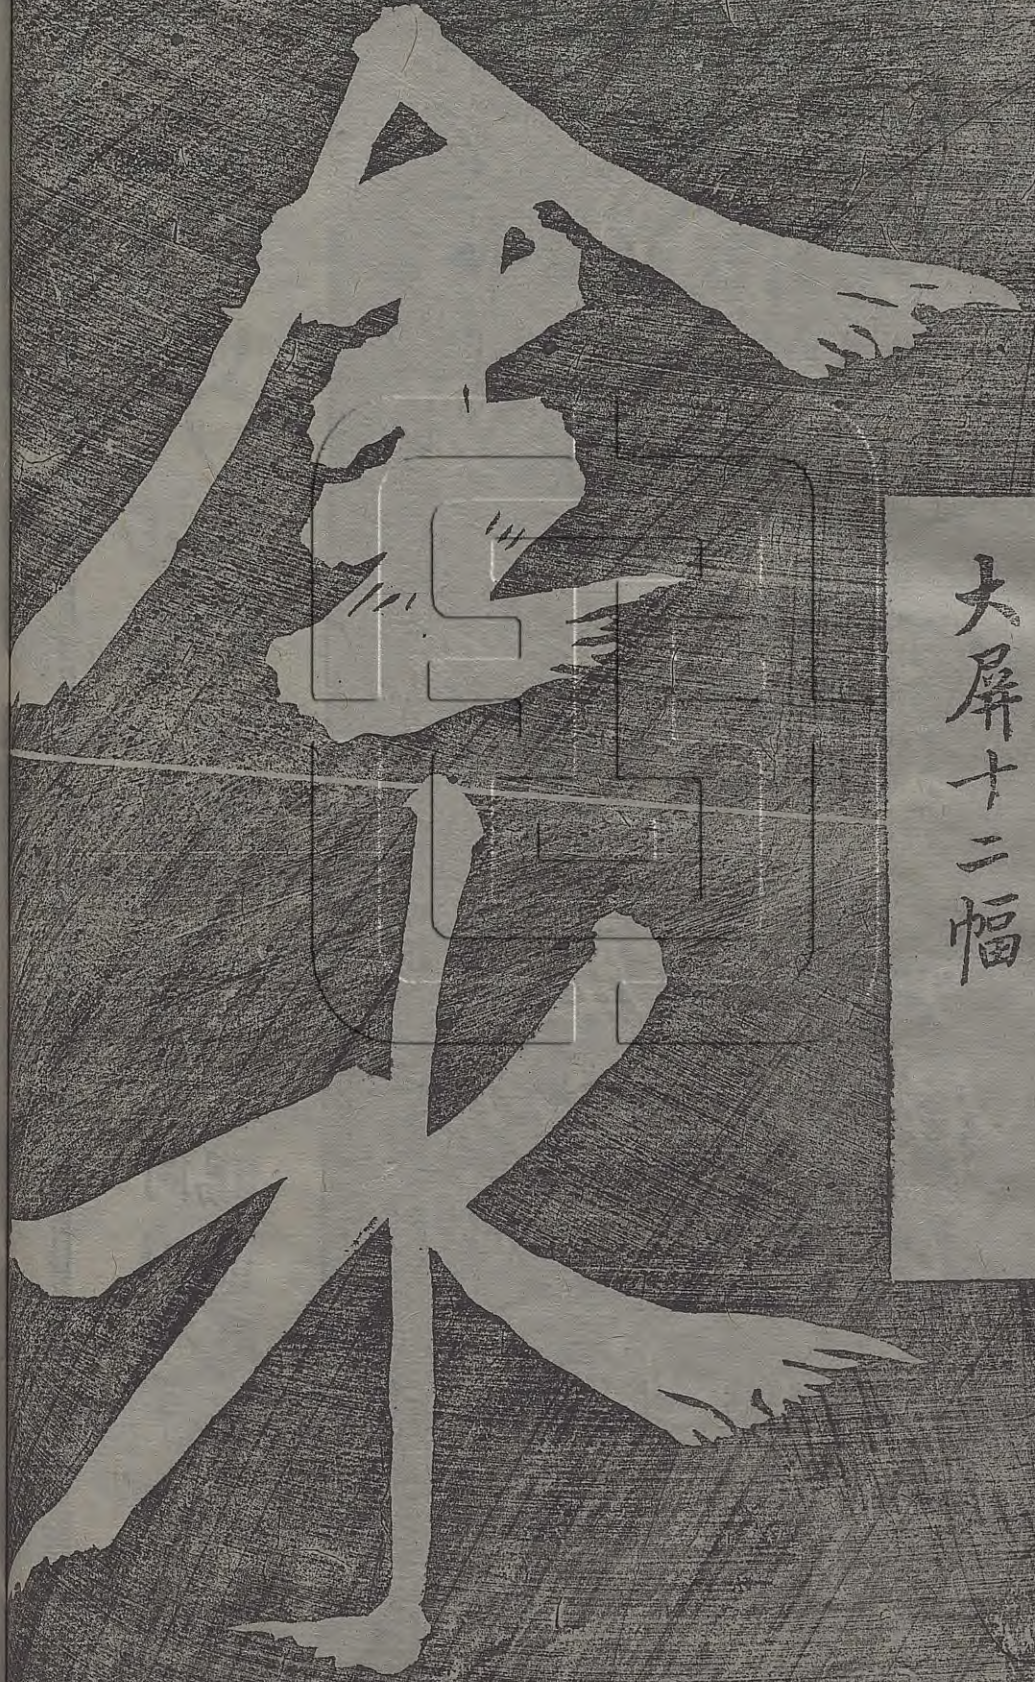 大屏十二幅
金水